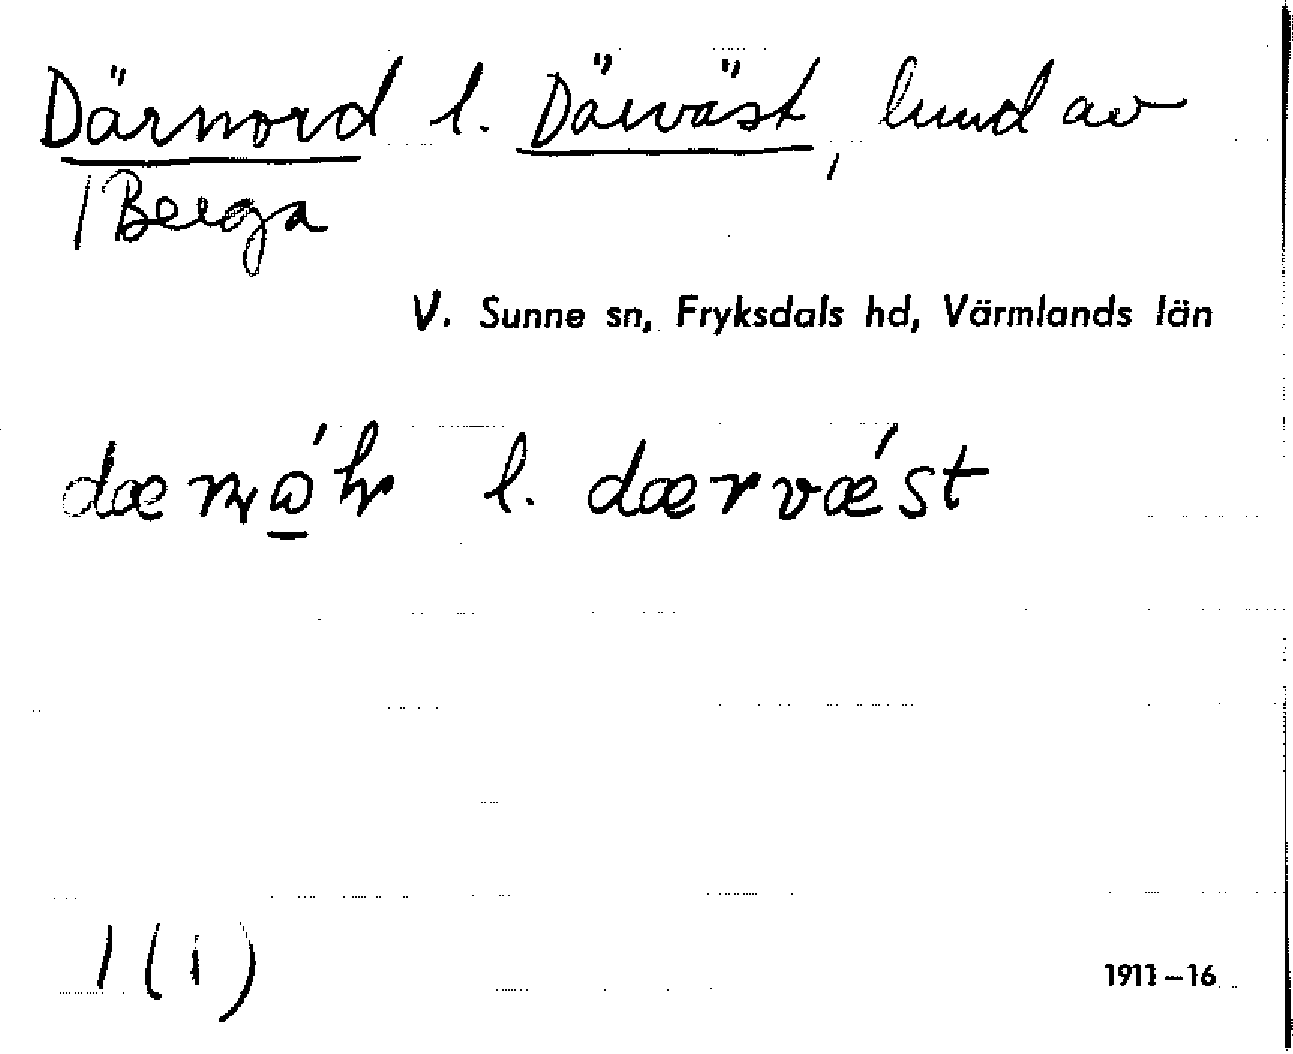 Därnord l. Därväst, lund av
/ Berga
V. Sunne sn, Fryksdals hd, Värmlands län
l. dærvǽst
1 (1)
1911–16